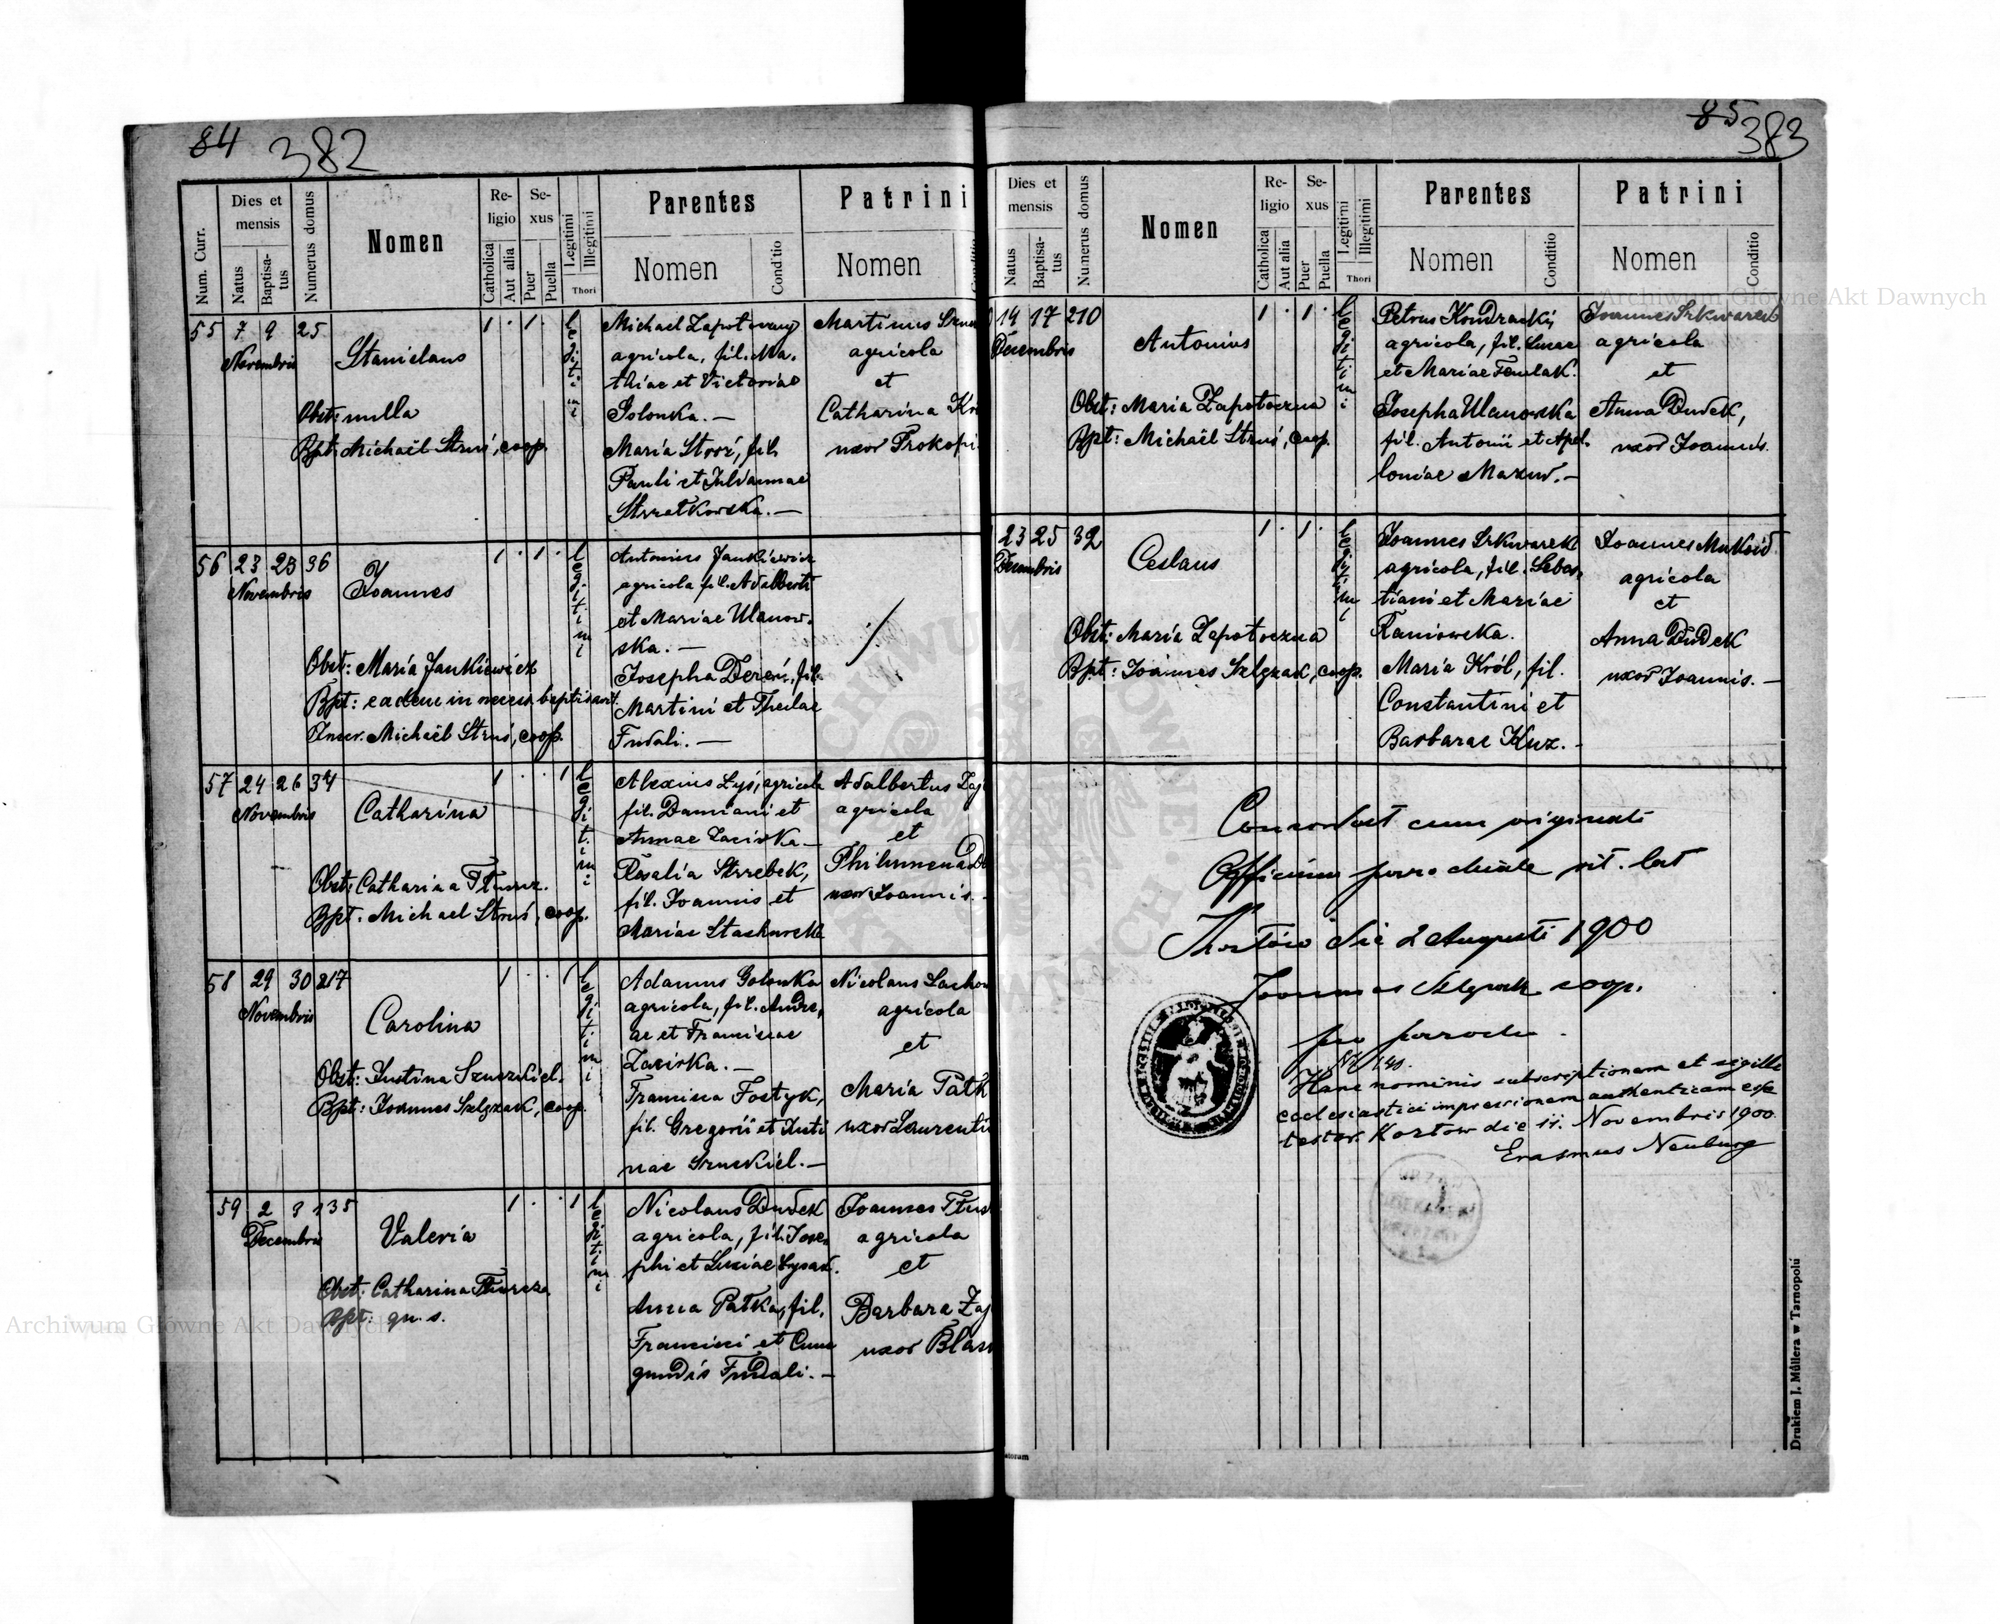 84 382
Num. Curr.
Dies et mensis
Natus
Baptisa-
tus
Numerus domus
Nomen
Re-
ligio
Catholica
Aut alia
Se-
xus
Puer
Puella
Legitimi
Illegitimi
Thori
Parentes
Nomen
Conditio
Patrini
Nomen
55 7 9 25
Novembris
Stanislaus
Obst: nulla
Bpt: Michaël Struś, coop.
1 . 1 .
legitimi
Michael Zapotoczny
agricola, fil. Ma-
thiae et Victoriae
Golonka. —
Maria Storż, fil.
Pauli et Julianae
Strzetkowska. —
Martinus
agricola
et
Catharina
uxor Prokopi
56 23 23 36
Novembris
Joannes
Obst: Maria Jankiewicz
Bpt: eadem in necess. baptisavit.
Inscr. Michaël Struś, coop.
1 . 1 .
legitimi
Antonius Jankiewicz
agricola fil. Adalberti
et Mariae Ulanow-
ska. —
Josepha Dereń, fil.
Martini et Theclae
Fudali. —
./.
57 24 26 34
Novembris
Catharina
Obst: Catharina
Bpt: Michael Struś, coop.
1 . . 1
legitimi
Alexius Łyś, agricola
fil. Damiani et
Annae Zacirka —
Rosalia Strzebek,
fil. Joannis et
Mariae
Adalbertus Zaj
agricola
et
Philumena
uxor Joannis. —
58 29 30 217
Novembris
Carolina
Obst: Justina Szuszkiel.
Bpt: Joannes Szlęzak, coop.
1 . . 1
legitimi
Adamus Golonka
agricola, fil. Andre-
ae et Franciscae
Zacirka. —
Francisca Fostyk,
fil. Gregorii et Justi
nae Szuszkiel. —
Nicolaus
agricola
et
Maria Patk
uxor Laurentii
59 2 3 135
Decembris
Valeria
Obst: Catharina
Bpt: qu. s.
1 . . 1
legitimi
Nicolaus Dudek
agricola, fil. Jose-
phi et Luciae
Anna Patka, fil.
Francisci et Cune
gundis Fudali. —
Joannes
agricola
et
Barbara Zaj
uxor Blasi
85 383
Dies et
mensis
Natus
Baptisa-
tus
Numerus domus
Nomen
Re-
ligio
Catholica
Aut alia
Se-
xus
Puer
Puella
Legitimi
Illegitimi
Thori
Parentes
Nomen
Conditio
Patrini
Nomen
Conditio
14 17 210
Decembris
Antonius
Obst: Maria Zapotoczna
Bpt: Michaël Struś, coop.
1 . 1 .
legitimi
Petrus Kondracki,
agricola, fil. Lucae
et Mariae
Josepha Ulanowska
fil. Antonii et Apol-
loniae Mazur. —
Joannes Szkwarek
agricola
et
Anna Dudek,
uxor Joannis.
23 25 32
Decembris
Ceslaus
Obst: Maria Zapotoczna
Bpt: Joannes Szlęzak, coop.
1 . 1 .
legitimi
Joannes Szkwarek
agricola, fil. Sebas-
tiani et Mariae
Raniowska.
Maria Król, fil.
Constantini et
Barbarae Kuz. —
Joannes
agricola
et
Anna Dudek
uxor Joannis. —
Concordat cum originali
Officium parochiale rit. lat
Kozłów die 2 Augusti 1900
Joannes Szlęzak coop.
pro parocho.
Hanc nominis subscriptionem et sigilli
ecclesiastici impressionem authenticam esse
testor. Kozłów die 11. Novembris 1900.
Erasmus Neuburg
Drukiem J. Müllera w Tarnopolu
Archiwum Główne Akt Dawnych
Archiwum Główne Akt Dawnych